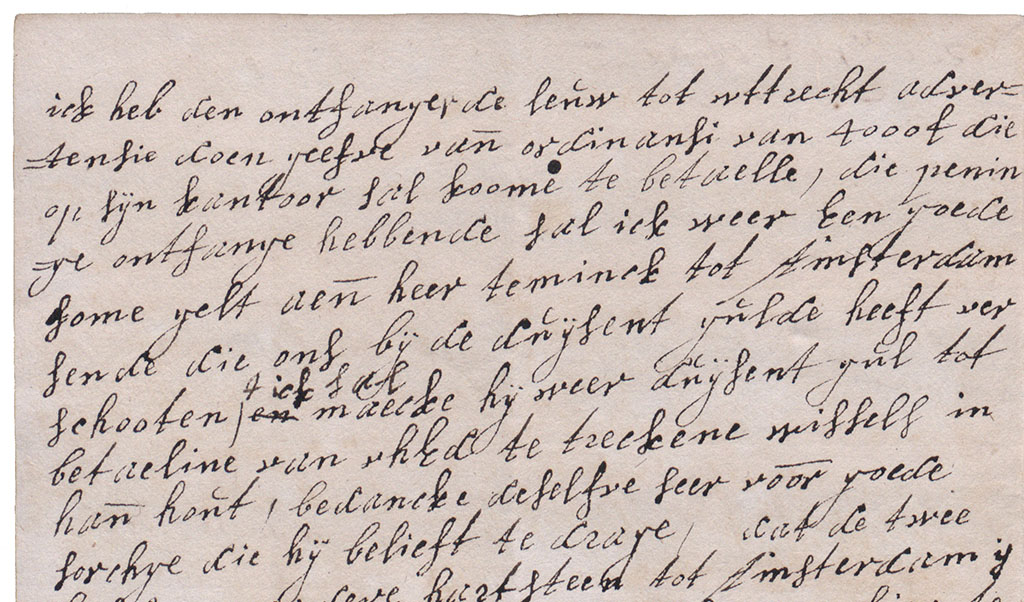 ick heb den ontfanger de leuw tot uttrecht adver=
=tensie doen geefve vañ ordinansi van 4000f die
op sijn kantoor sal koome te betaelle, die penin
=ge ontfange hebbende sal ick weer Een goede
some gelt aeñ heer teminck tot Amsterdam
sende die ons bij de duijsent gulde heeft ver
schooten, ick sal maecke hij weer duijsent gul tot
betaeline van te treckene wissels in
hañ hout, bedancke deselfve seer voor goede
sorchge die hij belieft te drage, dat de twee
hartsteen tot Amsterdam is